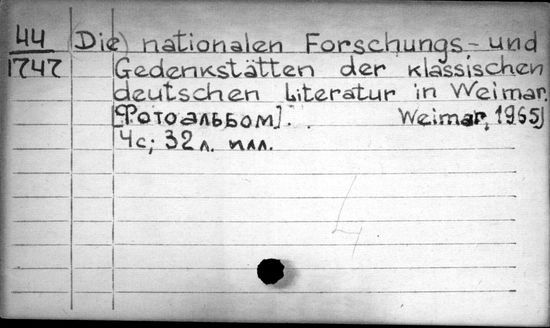 44 (Die) nationalen Forschungs- und
1747 Gedenkstätten der klassischen
deutschen Literatur in Weimar.
[Фотоальбом]. Weimar, 1965]
4с; 32 л. илл.
4